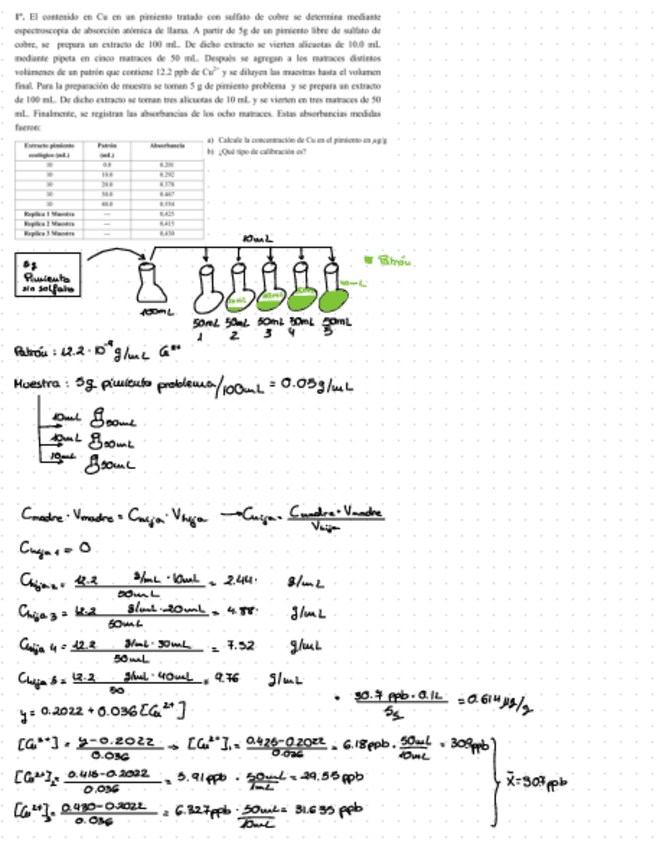 1º. El contenido en Cu en un pimiento tratado con sulfato de cobre se determina mediante
espectroscopia de absorción atómica de llama. A partir de 5g de un pimiento libre de sulfato de
cobre, se prepara un extracto de 100 mL. De dicho extracto se vierten alícuotas de 10.0 mL
mediante pipeta en cinco matraces de 50 mL. Después se agregan a los matraces distintos
volúmenes de un patrón que contiene 12.2 ppb de Cu²⁺ y se diluyen las muestras hasta el volumen
final. Para la preparación de muestra se toman 5 g de pimiento problema y se prepara un extracto
de 100 mL. De dicho extracto se toman tres alícuotas de 10 mL y se vierten en tres matraces de 50
mL. Finalmente, se registran las absorbancias de los ocho matraces. Estas absorbancias medidas
fueron:
Extracto pimiento ecológico (mL) Patrón (mL) Absorbancia
10 0.0 0.201
10 10.0 0.292
10 20.0 0.378
10 30.0 0.467
10 40.0 0.554
Replica 1 Muestra --- 0,425
Replica 2 Muestra --- 0,415
Replica 3 Muestra --- 0,430
a) Calcule la concentración de Cu en el pimiento en µg/g
b) ¿Qué tipo de calibración es?
10mL
Patrón
5g
Pimiento
sin sulfato
100mL
50mL 50mL 50mL 50mL 50mL
1 2 3 4 5
Patrón: 12.2·10⁻⁹ g/mL Cu²⁺
Muestra: 5g pimiento problema/100mL = 0.05g/mL
10mL 50mL
10mL 50mL
10mL 50mL
Cmadre · Vmadre = Chija · Vhija → Chija = Cmadre · Vmadre / Vhija
Chija 1 = 0
Chija 2 = 12.2 g/mL · 10mL / 50mL = 2.44 g/mL
Chija 3 = 12.2 g/mL · 20mL / 50mL = 4.88 g/mL
Chija 4 = 12.2 g/mL · 30mL / 50mL = 7.32 g/mL
Chija 5 = 12.2 g/mL · 40mL / 50 = 9.76 g/mL
y = 0.2022 + 0.036[Cu²⁺]
30.7 ppb · 0.1L / 5g = 0.614 µg/g
[Cu²⁺] = y-0.2022 / 0.036 → [Cu²⁺]₁ = 0.425-0.2022 / 0.036 = 6.18ppb · 50mL / 10mL = 30.9ppb
[Cu²⁺]₂ = 0.415-0.2022 / 0.036 = 5.91ppb · 50mL / 1mL = 29.55ppb
[Cu²⁺]₃ = 0.430-0.2022 / 0.036 = 6.327ppb · 50mL / 10mL = 31.635 ppb
x̄ = 30.7 ppb